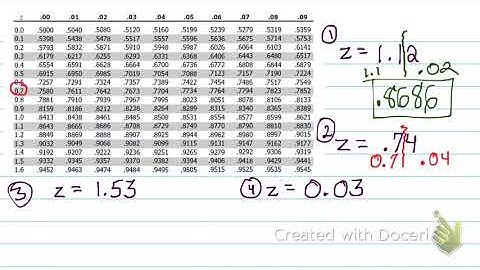 z .00 .01 .02 .03 .04 .05 .06 .07 .08 .09
0.0 .5000 .5040 .5080 .5120 .5160 .5199 .5239 .5279 .5319 .5359
0.1 .5398 .5438 .5478 .5517 .5557 .5596 .5636 .5675 .5714 .5753
0.2 .5793 .5832 .5871 .5910 .5948 .5987 .6026 .6064 .6103 .6141
0.3 .6179 .6217 .6255 .6293 .6331 .6368 .6406 .6443 .6480 .6517
0.4 .6554 .6591 .6628 .6664 .6700 .6736 .6772 .6808 .6844 .6879
0.5 .6915 .6950 .6985 .7019 .7054 .7088 .7123 .7157 .7190 .7224
0.6 .7257 .7291 .7324 .7357 .7389 .7422 .7454 .7486 .7517 .7549
0.7 .7580 .7611 .7642 .7673 .7704 .7734 .7764 .7794 .7823 .7852
0.8 .7881 .7910 .7939 .7967 .7995 .8023 .8051 .8078 .8106 .8133
0.9 .8159 .8186 .8212 .8238 .8264 .8289 .8315 .8340 .8365 .8389
1.0 .8413 .8438 .8461 .8485 .8508 .8531 .8554 .8577 .8599 .8621
1.1 .8643 .8665 .8686 .8708 .8729 .8749 .8770 .8790 .8810 .8830
1.2 .8849 .8869 .8888 .8907 .8925 .8944 .8962 .8980 .8997 .9015
1.3 .9032 .9049 .9066 .9082 .9099 .9115 .9131 .9147 .9162 .9177
1.4 .9192 .9207 .9222 .9236 .9251 .9265 .9279 .9292 .9306 .9319
1.5 .9332 .9345 .9357 .9370 .9382 .9394 .9406 .9418 .9429 .9441
1.6 .9452 .9463 .9474 .9484 .9495 .9505 .9515 .9525 .9535 .9545
① z = 1.12
1.1 .02
.8686
② z = .74
0.7 .04
③ z = 1.53
④ z = 0.03
Created with Doceri